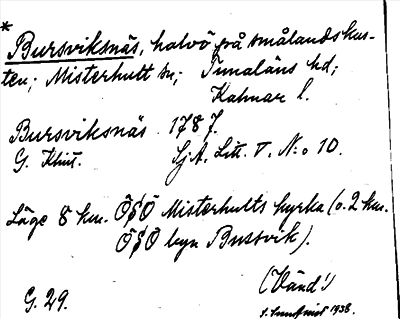 *
Bursviksnäs, halvö på smålandskus-
ten; Misterhult sn; Tunaläns hd;
Kalmar l.
Bursviksnäs 1787.
G. Klint. SjA. Litt. V. N:o 10.
Läge 8 km. ÖSÖ Misterhults kyrka (o. 2 km.
ÖSÖ byn Bussvik).
(Vänd!)
G. 29.
1938.